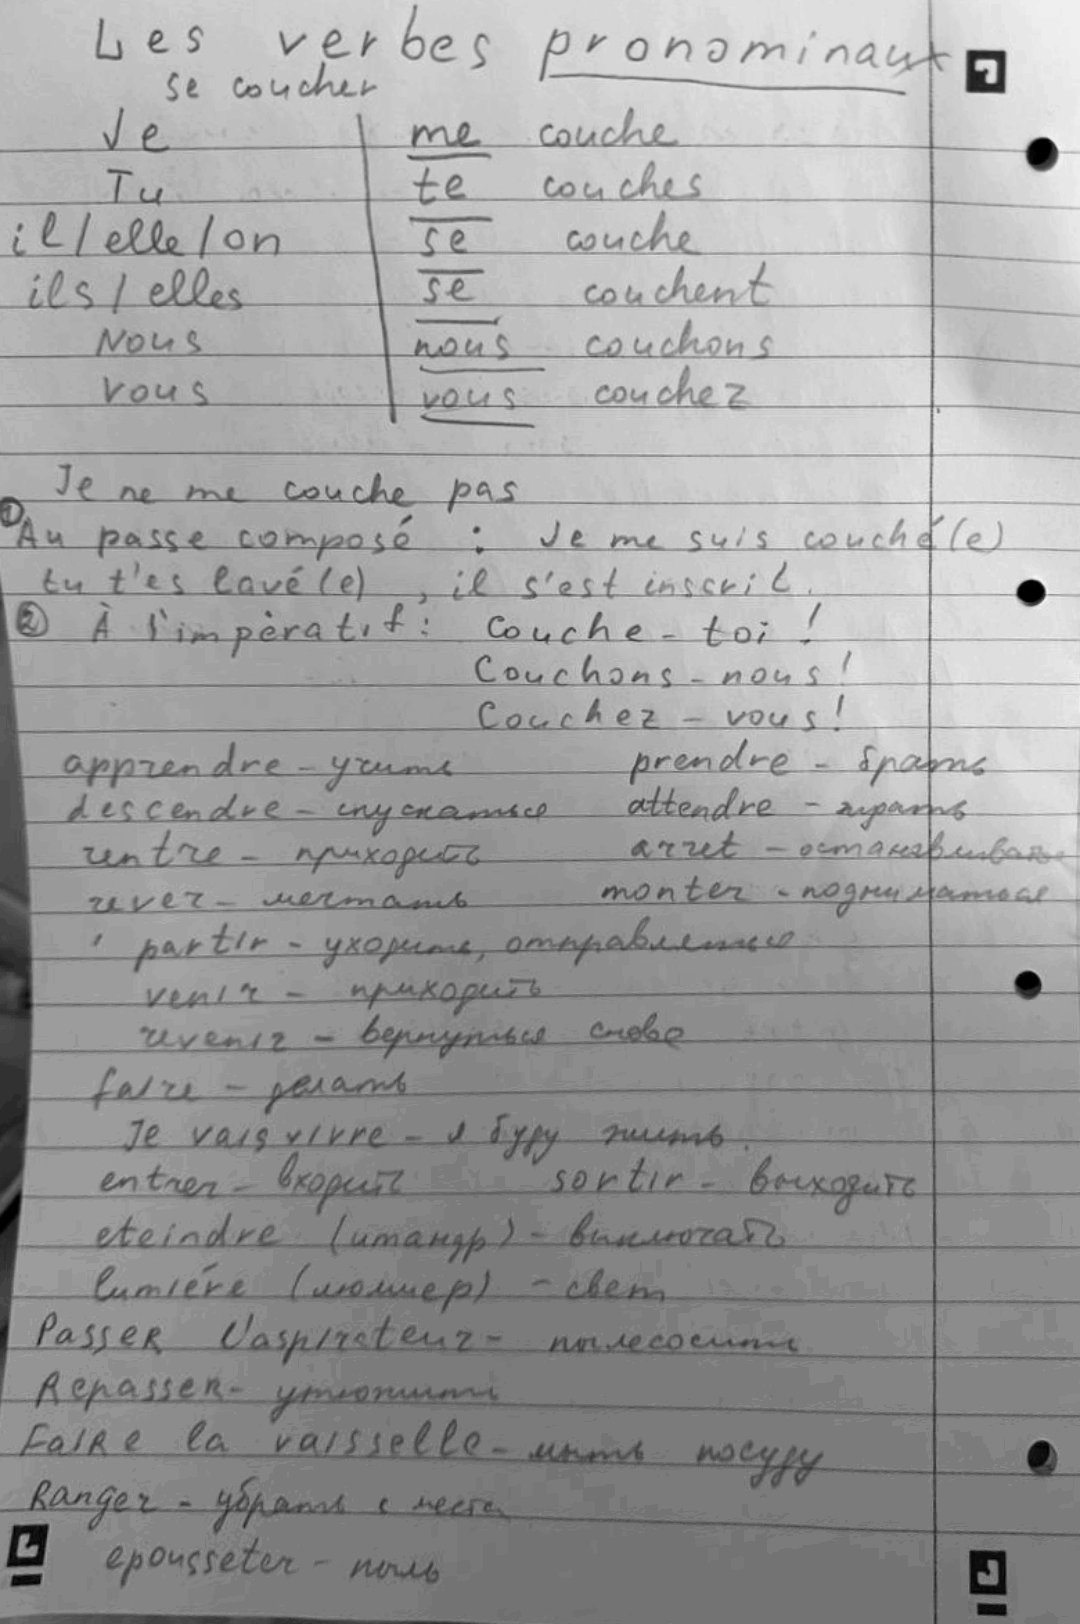 Les verbes pronominaux
se coucher
Je me couche
Tu te couches
il/elle/on se couche
ils/elles se couchent
Nous nous couchons
vous vous couchez
Je ne me couche pas
① Au passe composé : Je me suis couché(e)
tu t'es lavé(e), il s'est inscrit.
② À l'impèratif: Couche-toi!
Couchons-nous!
Couchez-vous!
apprendre - учить prendre - брать
descendre - спускаться attendre - ждать
rentre - приходить arret - останавливать
rever - мечтать monter - подниматься
partir - уходить, отправляться
venir - приходить
revenir - вернуться снова
faire - делать
Je vais vivre - я буду жить.
entrer - входить sortir - выходить
eteindre (итандр) - выключать
lumiére (люмиер) - свет
Passer l'aspirateur - пылесосить
Repasser - утюжить
Faire la vaisselle - мыть посуду
Ranger - убрать с места
epousseter - пыль